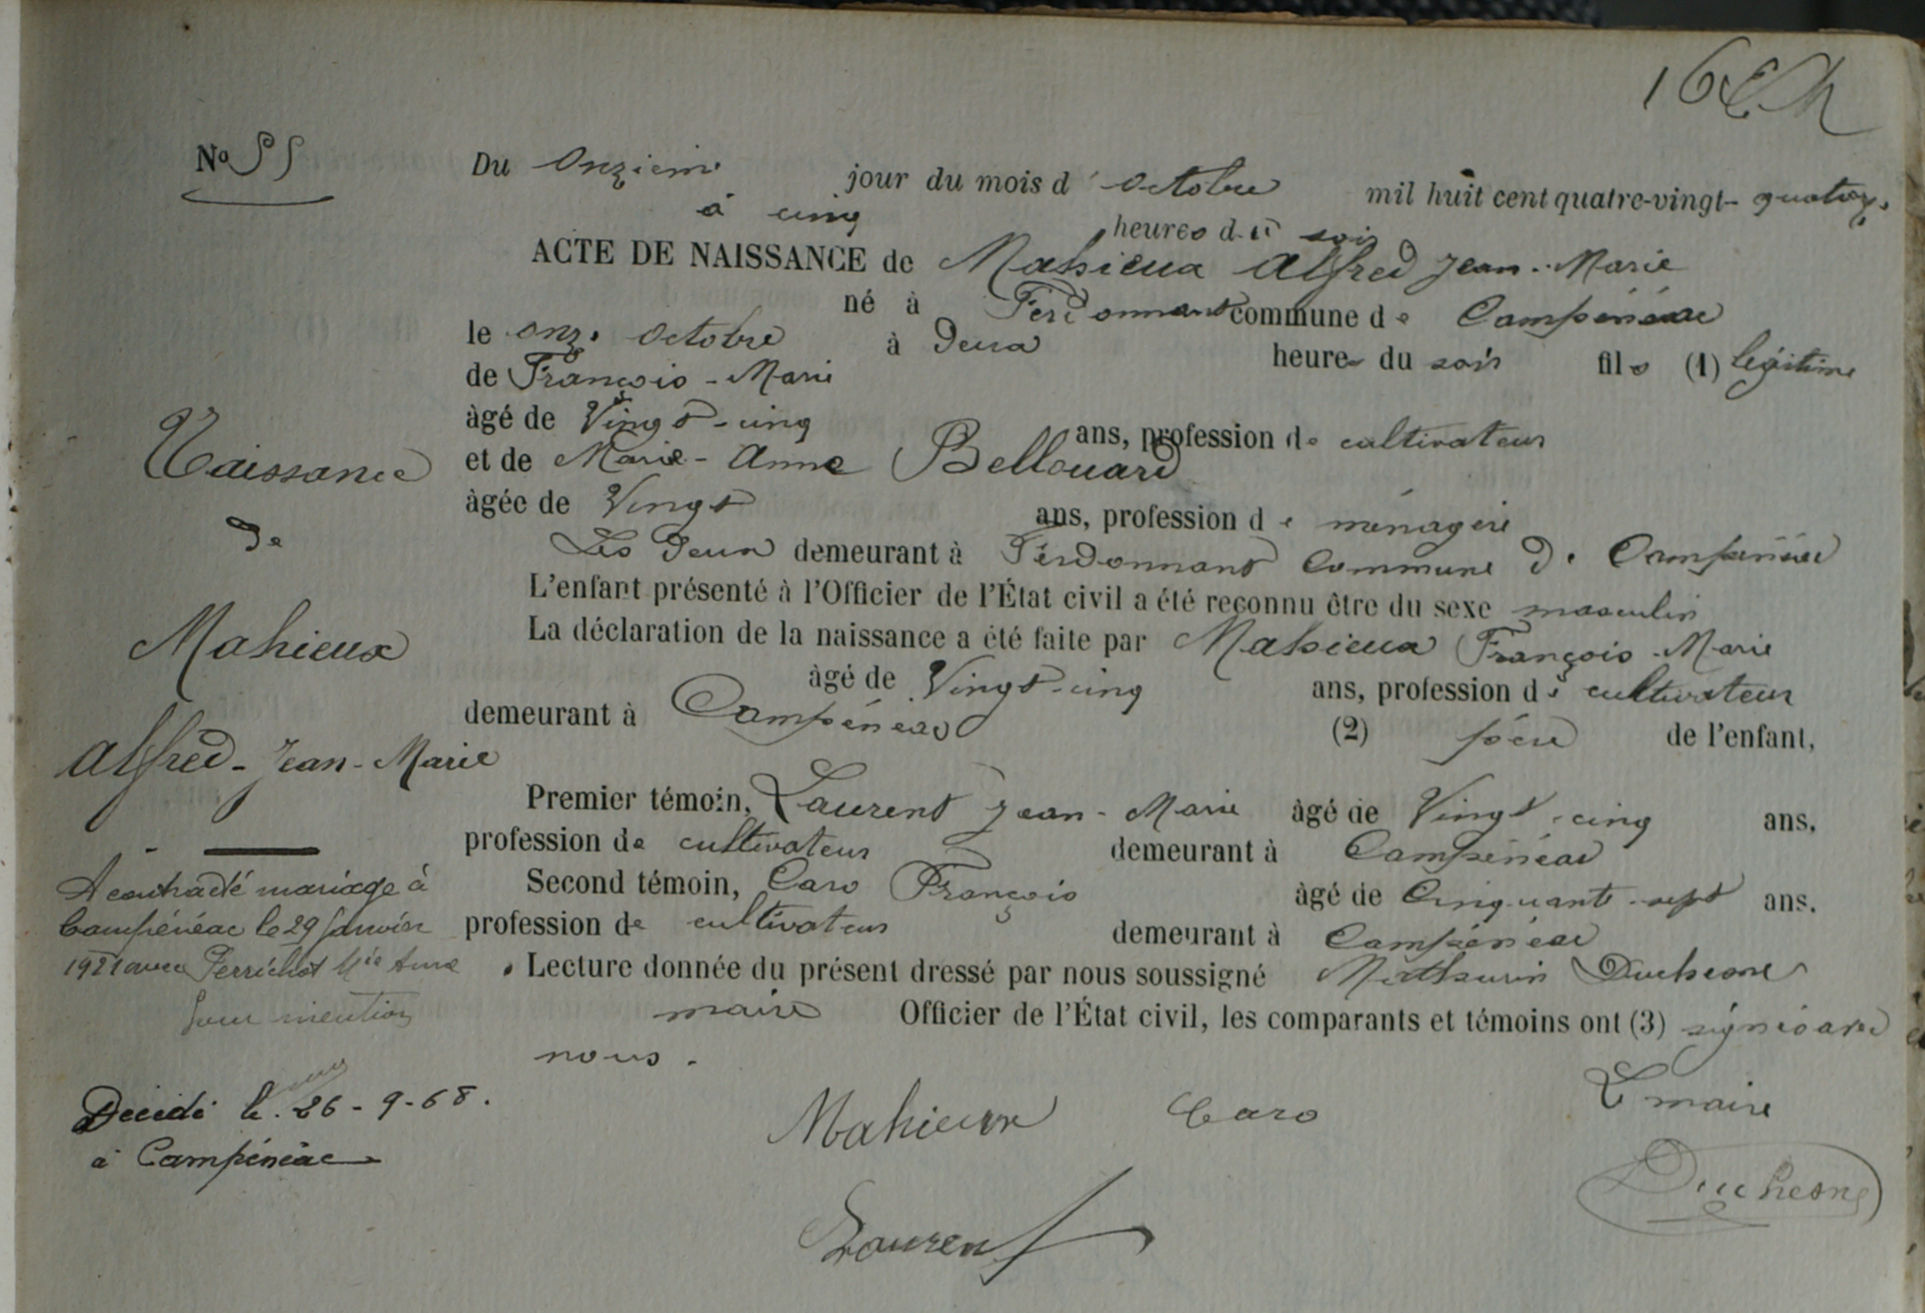 16
No 55
Du onzième jour du mois d'octobre mil huit cent quatre-vingt-quatorze
à cinq heures du soir
ACTE DE NAISSANCE de Mahieux Alfred Jean-Marie
né à Ferdonnant commune de Campénéac
le onze octobre à deux heures du soir fils (1) légitime
de François-Marie
âgé de Vingt-cinq ans, profession de cultivateur
et de Marie-Anne Bellouard
âgée de Vingt ans, profession de ménagère
Les deux demeurant à Ferdonnant commune de Campénéac
L'enfant présenté à l'Officier de l'État civil a été reconnu être du sexe masculin
La déclaration de la naissance a été faite par Mahieux François-Marie
âgé de Vingt-cinq ans, profession de cultivateur
demeurant à Campénéac (2) père de l'enfant,
Premier témoin, Laurent Jean-Marie âgé de Vingt-cinq ans,
profession de cultivateur demeurant à Campénéac
Second témoin, Caro François âgé de Cinquante-sept ans.
profession de cultivateur demeurant à Campénéac
Lecture donnée du présent dressé par nous soussigné Mathurin Duchesne
maire Officier de l'État civil, les comparants et témoins ont (3) signé avec
nous.
Mahieux Caro Le maire
Duchesne
Laurent
Naissance
de
Mahieux
Alfred-Jean-Marie
A contracté mariage à
Campénéac le 29 Janvier
1921 avec Perrichot Mie Anne
Pour mention
Décédé le 26-9-68.
à Campénéac